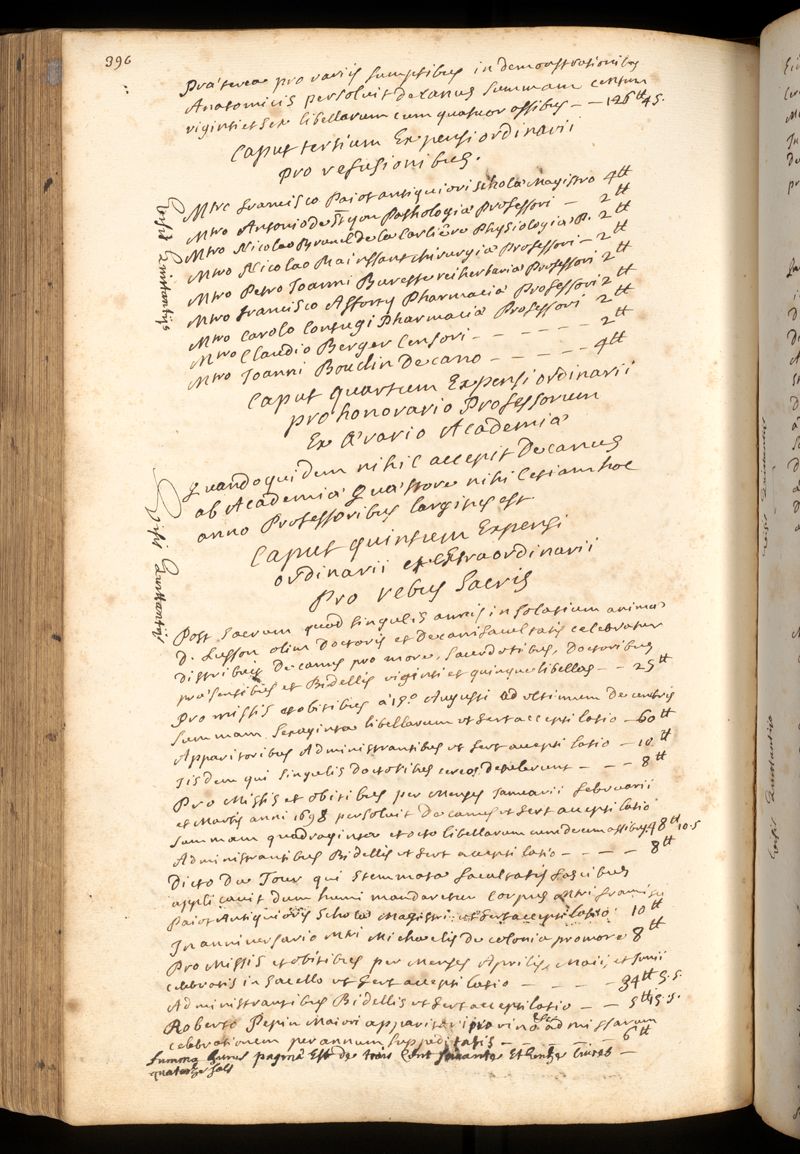 396
Præterea pro variis sumptibus in demonstrationibus
Anatomicis persoluit decanus summam centum
viginti et sex libellarum cum quatuor assibus – – 126 ₶ 4 s.
Caput tertium Expensi ordinarii
pro refusionibus.
Mtro francisco Paiot antiquiori scholæ Magistro 4 ₶
Mtro Antonio de Pathologiæ Professori – 2 ₶
Mtro Nicolao de la Carliere Physiologiæ P. 2 ₶
Mtro Nicolao Mairessant chirurgiæ Professori – 2 ₶
Mtro Petro Joanni Burette rei herbariæ Professori 2 ₶
Mtro francisco Afforty Pharmaciæ Professori 2 ₶
Mtro Carolo Contugi Pharmaciæ Professori 2 ₶
Mtro Claudio Berger Censori – – – – – – 2 ₶
Mtro Joanni Boudin Decano – – – – – 4 ₶
Caput quartum Expensi ordinarii
pro honorario Professorum
Ex Ærario Academiæ
Quandoquidem nihil accepit Decanus
ab Academiæ Quæstore nihil etiam hoc
anno Professoribus largitus est
Caput quintum Expensi
ordinarii et Extraordinarii
Pro rebus Sacris
Post Sacrum quod singulis annis in solatium animæ
D. Lusson olim Doctoris et Decani facultatis celebratur
distribuit Decanus pro more, Sacerdotibus, Doctoribus
præsentibus et Bidellis viginti et quinque libellas – – 25 ₶
Pro missis et obitibus a 15° Augusti ad ultimum decembris
summam sexaginta libellarum ut fert accepti latio – 60 ₶
Apparitoribus Administrantibus ut fert accepti latio – 10 ₶
Iisdem qui singulis doctoribus cereos detulerunt – – – 8 ₶
Pro Missis et obitibus per Menses Januarii februarii
et Martii anni 1698 persoluit Decanus ut fert accepti latio
summam quadraginta et octo libellarum cum decem assibus 48 ₶ 10 s
Administrantibus Bidellis ut fert accepti latio – – – – 8 ₶
Dicto De Tour qui Stemmata facultatis fascibus
applicauit dum humi mandaretur corpus Mtri francisci
Paiot Antiquioris Scholæ Magistri ut fert accepti latio 10 ₶
In anniversario Mtri Michaelis de colonia pro more 8 ₶
Pro Missis et obitibus per Menses Aprilis, Maii, et Junii
celebratis in sacello ut fert accepti latio – – – – 34 ₶ 5 s.
Administrantibus Bidellis ut fert accepti latio – – 5 ₶ 15 s.
Roberto Pepin Maiori apparitori pro vino ad missarum
celebrationem per annum suppeditatis – – – – – 6 ₶
Summa huius paginæ Est de trois Cent soixante Et livres –
quatorze sols